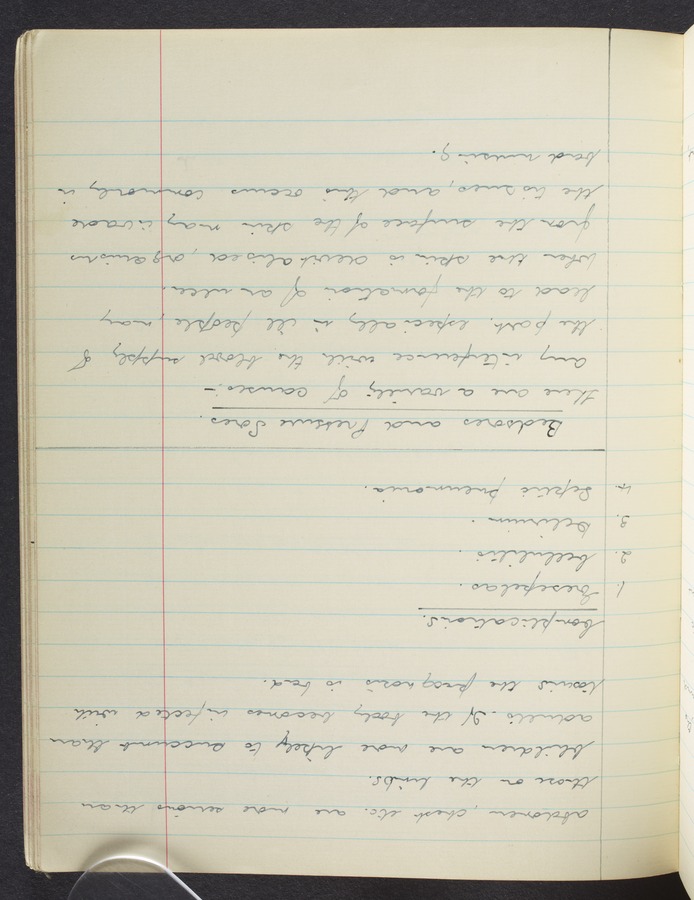 abdomen, chest etc. are more serious than
those on the limbs.
Children are more likely to succumb than
adults. If the body becomes infected with
the prognosis is bad.
Complications.
1. Eresepelas.
2. Cellulitis.
3. Delirium.
4. Septic pneumonia.
Bedsores and Pressure Sores.
There are a variety of causes:-
Any interference with the blood supply of
the part. especially in ill people, may
lead to the formation of an ulcer.
When the skin is devitalised, organisms
from the surface of the skin may invade
the tissues, and this occurs commonly in
bad nursing.